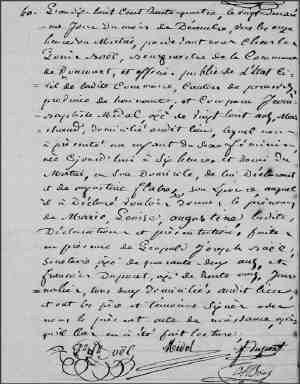 L'an dix huit cent trente quatre, le vingt
me Jour du mois de Décembre, à onze
heures du Matin, pardevant nous Charles
Louis Noël, Bourgmestre de la Commune
de et officier public de l'état Ci-
vil de ladite Commune, Canton de
province de hainaut, est Comparu Jean
Baptiste Midol, âgé de vingt huit ans, Mar
chand, domicilié audit lieu, lequel nous
a présenté un enfant du sexe féminin
né Ce jourd'hui à six heures et demi du
Matin, en son Domicile, de lui Déclarant
et de augustine flabas, son épouse auquel
il a Déclaré vouloir Donner le prénoms
de Marie, Louise, augustine lesdites
Déclaration et présentation, faites
en présence de Léopold Joseph Noël
Secrétaire âgé de quarante deux ans, et
francois Dupont, âgé de trente ans, Jour
nalier, tous deux Domiciliés audit lieu,
et ont les père et temoins Signer avec
nous le présent acte de naissance, après
qu'il leur en a été fait lecture.
Noël Midol f. Dupont